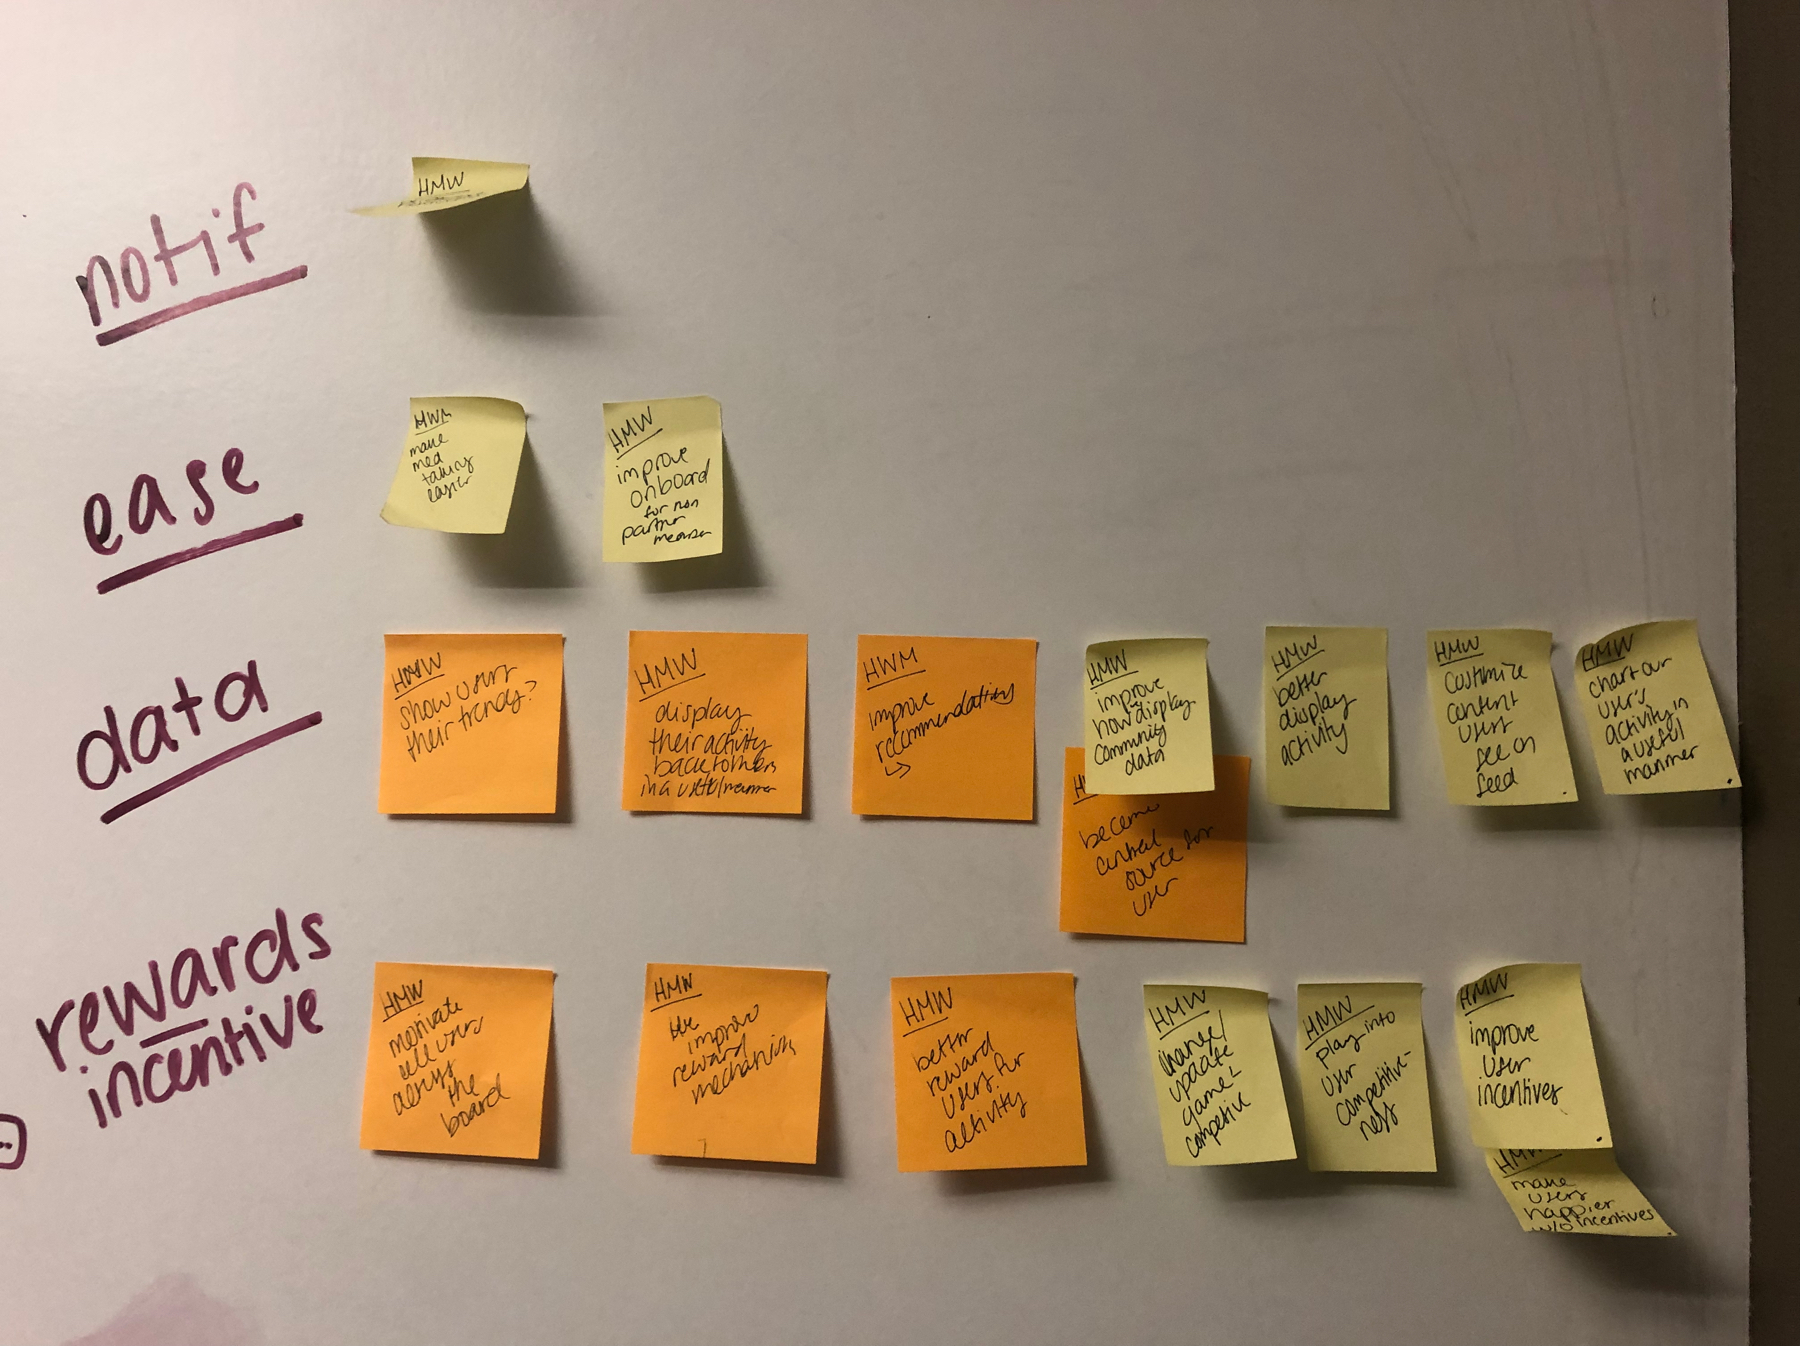 notif
HMW
ease
HWM
make
med
taking
easier
HMW
improve
onboard
for non
partner
member
data
HMW
show users
their trends?
HMW
display
their activity
back to them
in a useful manner
HWM
improve
recommendations
HMW
improve
how display
community
data
become
central
source for
user
HMW
better
display
activity
HMW
customize
content
users
see on
feed
HMW
chart our
user's
activity in
a useful
manner
rewards
incentive
HMW
motivate
all users
across
the
board
HMW
improve
reward
mechanism
HMW
better
reward
users for
activity
HMW
change/
update
game -
competive
HMW
play into
user
competitive-
ness
HMW
improve
user
incentives
HMW
make
users
happier
w/o incentives